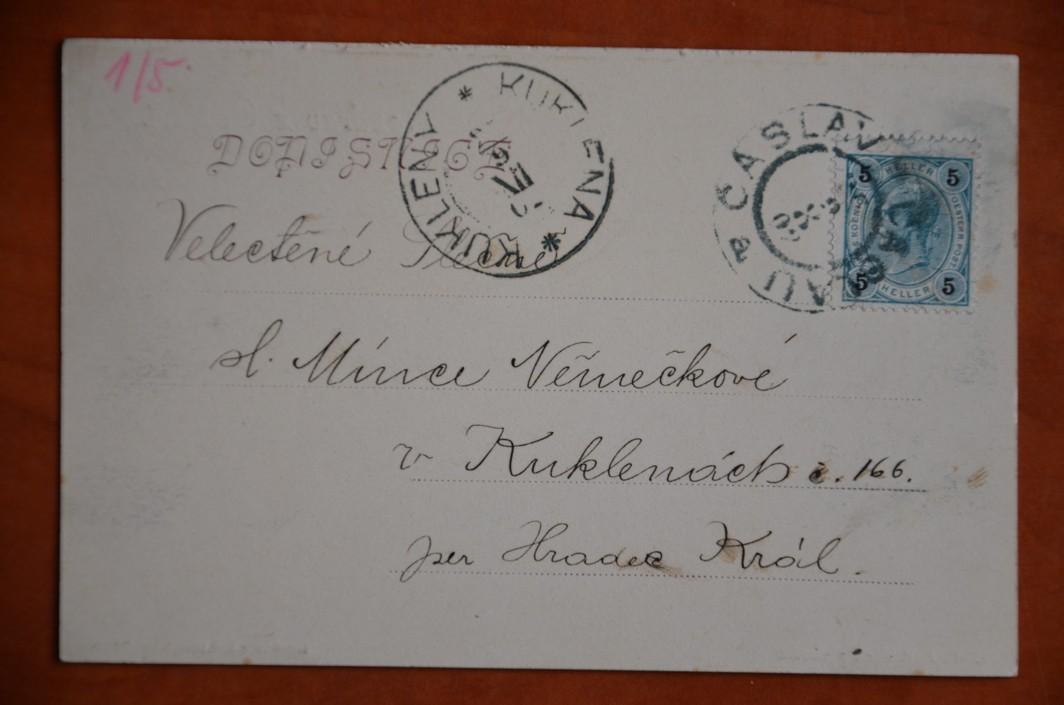 1/5
DOPISNICE
KUKLENA
KUKLENY
ČASLAU
5 HELLER 5
5 HELLER 5
Velectěné Slečně
sl. Mínce Němečkové
v Kuklenách č. 166.
per Hradec Král.